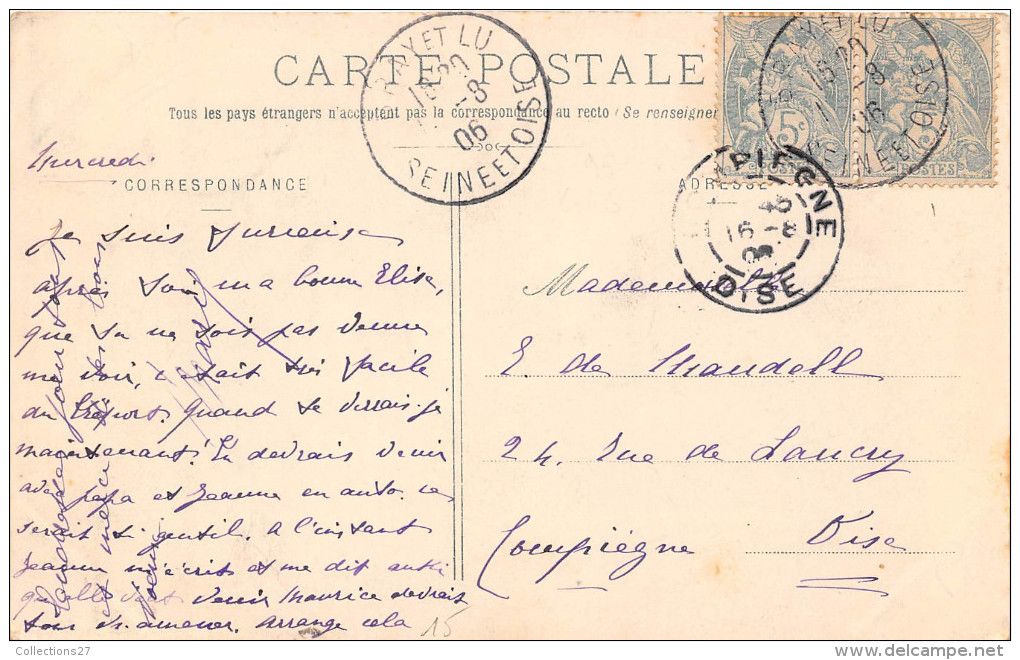 CARTE POSTALE
Tous les pays étrangers n'acceptent pas la correspondance au recto (Se renseigner
Mercredi
CORRESPONDANCE
ADRESSE
RAY ET LU
15 20
-8
06
SEINE ET OISE
RAY ET LU
15 20
-8
06
SEINE ET OISE
5c
POSTES
POSTES
PIEGNE
16
OISE
Je suis furieuse
après toi ma bonne Elise,
que tu ne sois pas venue
me voir, c'était si facile
du Tréport. Quand te verrai-je
maintenant? Tu devrais venir
avec papa et Jeanne en auto. ce
serait si gentil. A l'instant
Jeanne m'écrit et me dit
qu'elle doit venir Maurice devrait
vous amener. Arrange cela
Mademoiselle
E. de Mandell
24, Rue de Lancry
Compiègne Oise
15
Collections27
www.delcampe.net